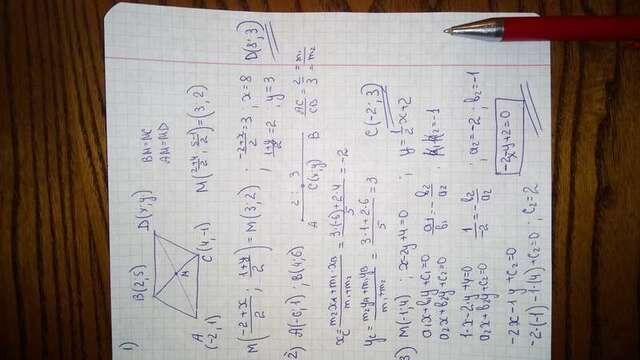 1)
B(2,5) D(x;y)
BM=MC
AM=MD
M
A
(-2,1)
C(4,-1)
M(2+4/2; 5-1/2)=(3;2)
M(-2+x/2; 1+y/2)=M(3;2) ; -2+x/2=3 ; x=8
; 1+y/2=2 , y=3
2) A(-6;1) ; B(4;6)
2 : 3
A C(x;y) B
AC/CB=2/3=m₁/m₂
xc=m₂xA+m₁·xB/m₁+m₂=3·(-6)+2·4/5=-2
yc=m₂yA+m₁yB/m₁+m₂=3·1+2·6/5=3
C(-2;3)
3) M(-1;4) ; x-2y+4=0 ; y=1/2x+2
a₁x+b₁y+c₁=0
a₂x+b₂y+c₂=0
a₁/b₁=-b₂/a₂ =-1
1·x-2·y+4=0
a₂x+b₂y+c₂=0
1/-2=-b₂/a₂ ; a₂=-2 ; b₂=-1
-2x-1y+c₂=0
-2x-y+2=0
-2·(-1)-1·(4)+c₂=0 ; c₂=2